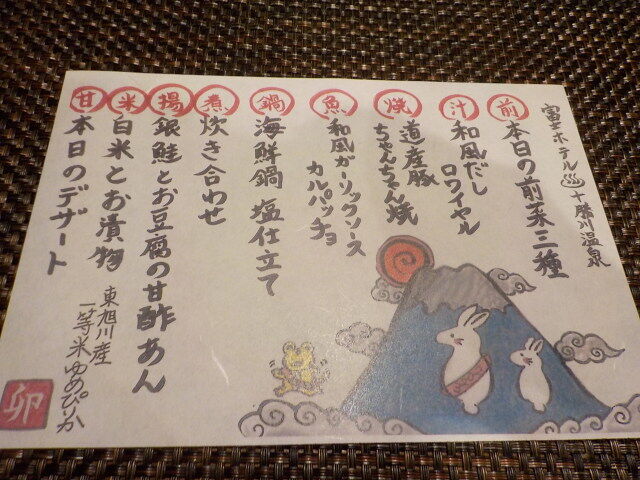 富士ホテル♨十勝川温泉
前 本日の前菜三種
汁 和風だし
ロワイヤル
焼 道産豚
ちゃんちゃん焼
魚 和風ガーリックソース
カルパッチョ
鍋 海鮮鍋 塩仕立て
煮 炊き合わせ
揚 銀鮭とお豆腐の甘酢あん
米 白米とお漬物
東旭川産
一等米ゆめぴりか
甘 本日のデザート
卯